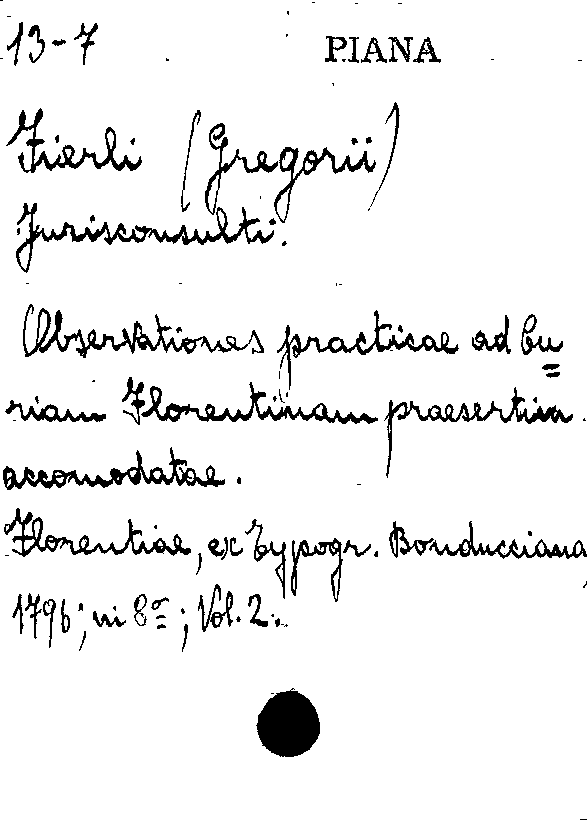 13-7 PIANA
Fierli (Gregorii)
Jurisconsulti.
Observationes practicae ad Cu=
riam Florentinam praesertim
accomodatae.
Florentiae, ex Typogr. Bonducciana,
1796; in 8º; Vol. 2.